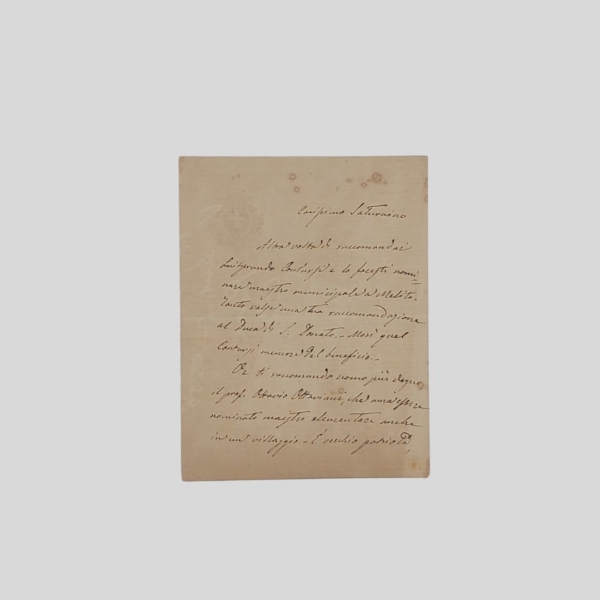 Carissimo Saturnino
Altra volta ti raccomandai
Luitprando Contursi e lo facesti nomi=
nare maestro municipale a Melito.
Tanto valse una tua raccomandazione
al Duca di S. Donato. – Morì quel
Contursi memore del beneficio. –
Or ti raccomando uomo più degno
il prof. Ottavio Ottaviani, che ama essere
nominato maestro elementare anche
in un villaggio – È vecchio patriota,